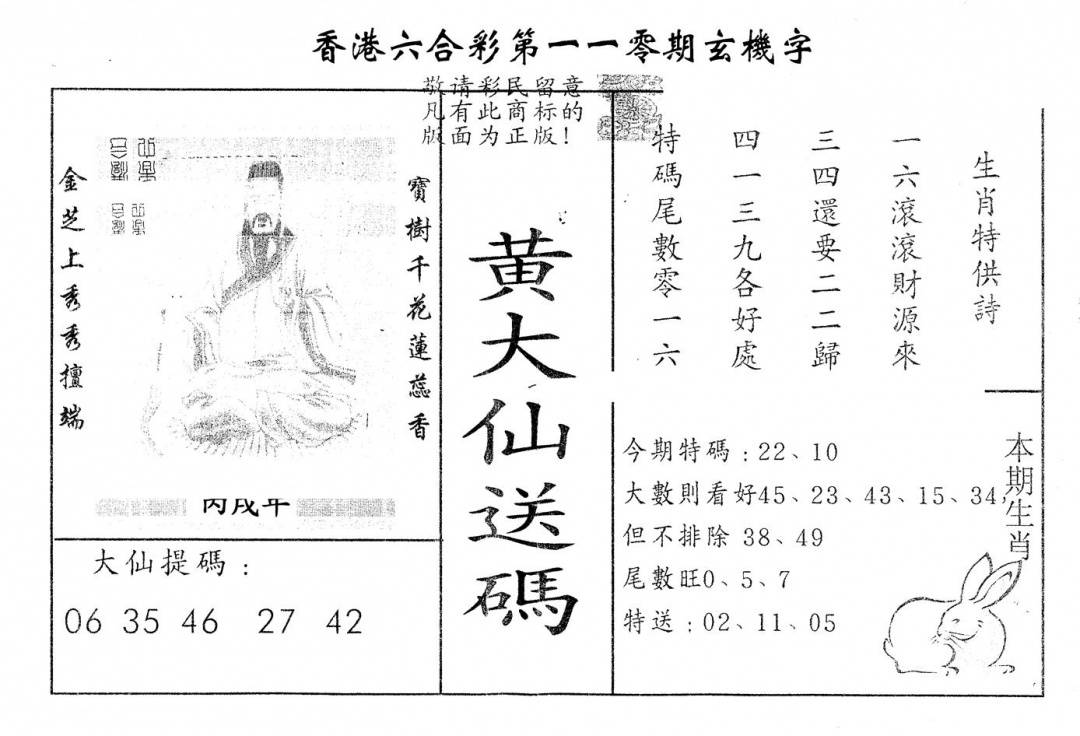 香港六合彩第一一零期玄機字
敬请彩民留意
凡有此商标的
版面为正版!
寶樹千花蓮蕊香
金芝上秀秀擅端
丙戌年
大仙提碼:
06 35 46 27 42
黄大仙送碼
生肖特供詩
一六滾滾財源來
三四還要二二歸
四一三九各好處
特碼尾數零一六
本期生肖
今期特碼:22、10
大數則看好45、23、43、15、34,
但不排除 38、49
尾數旺0、5、7
特送:02、11、05